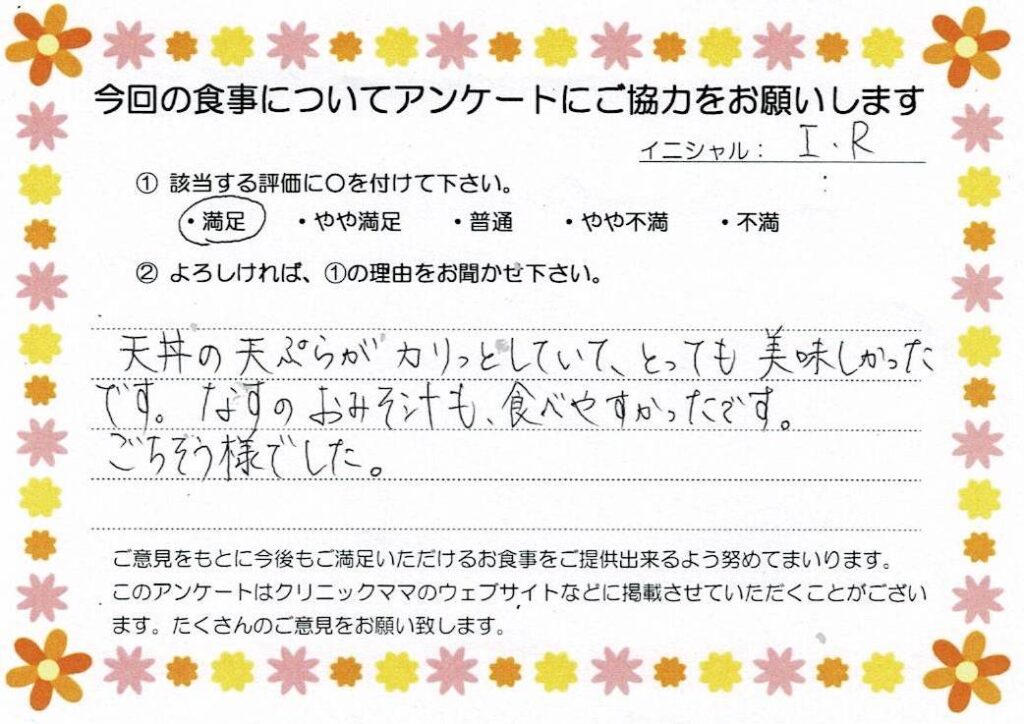 今回の食事についてアンケートにご協力をお願いします
イニシャル： I.R
① 該当する評価に〇を付けて下さい。
・満足 ・やや満足 ・普通 ・やや不満 ・不満
② よろしければ、①の理由をお聞かせ下さい。
天丼の天ぷらがカリっとしていて、とっても美味しかった
です。なすのおみそ汁も、食べやすかったです。
ごちぞう様でした。
ご意見をもとに今後もご満足いただけるお食事をご提供出来るよう努めてまいります。
このアンケートはクリニックママのウェブサイトなどに掲載させていただくことがござい
ます。たくさんのご意見をお願い致します。